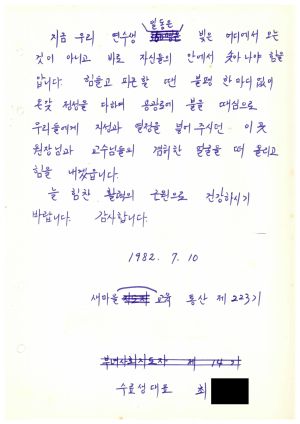 일동은
지금 우리 연수생 빛은 어디에서 오는
것이 아니고 바로 자신들의 안에서 솟아나야 함을
압니다. 힘들고 피곤할 땐 불평 한마디 없이
온갖 정성을 다하여 용광로에 불을 때심으로
우리들에게 지성과 열정을 넣어 주시던 이 곳
원장님과 교수님들의 겸허한 얼굴을 떠 올리고
힘을 내겠읍니다.
늘 힘찬 활력의 근원으로 건강하시기
바랍니다. 감사합니다.
1982. 7. 10
새마을 교육 통산 제 223기
부녀사회지도자 제 14기
수료생 대표 최